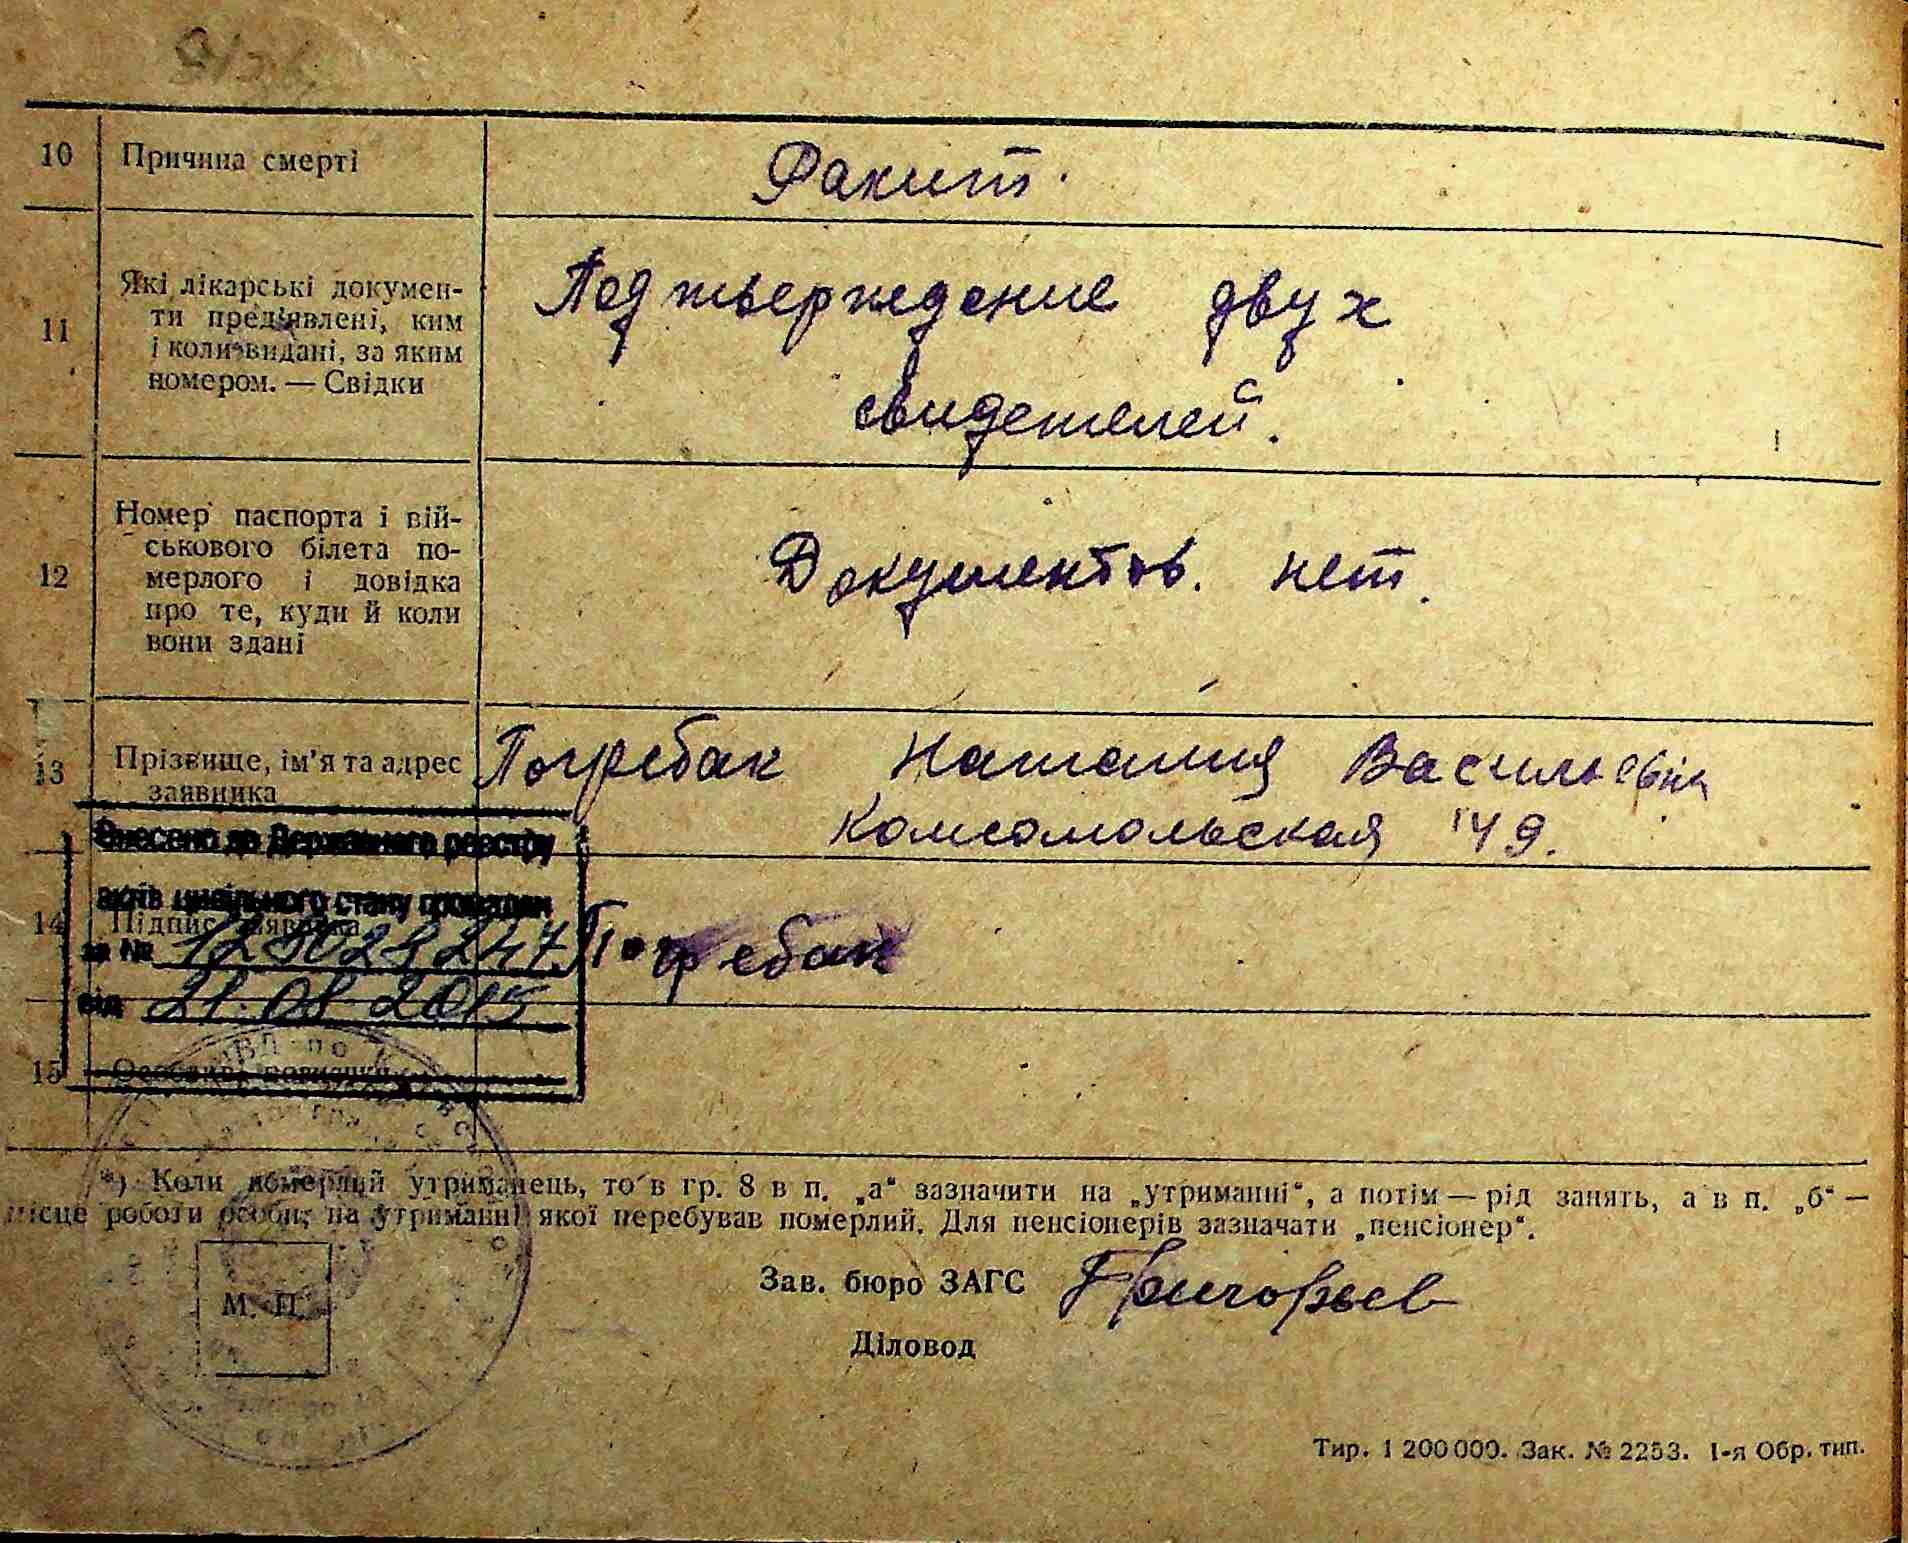 10 Причина смерті Ракит.
11 Які лікарські докумен-
ти пред'явлені, ким
і коли видані, за яким
номером. — Свідки
Подтверждение двух
свидетелей.
12 Номер паспорта і вій-
ськового білета по-
мерлого і довідка
про те, куди й коли
вони здані
Документов. нет.
13 Прізвище, ім'я та адрес
заявника
Погребак Наталия Васильевна
Комсомольская 49.
Внесено до Державного реєстру
актів цивільного стану громадян
за №
від 21.08.2015
14 Підпис заявника Погребак
15 Особливі
*) Коли померлий утриманець, то в гр. 8 в п. „а“ зазначити на „утриманні“, а потім — рід занять, а в п. „б“ —
місце роботи особи, на утриманні якої перебував померлий. Для пенсіонерів зазначати „пенсіонер“.
М. П.
Зав. бюро ЗАГС Григорьев
Діловод
Тир. 1 200 000. Зак. № 2253. 1-я Обр. тип.